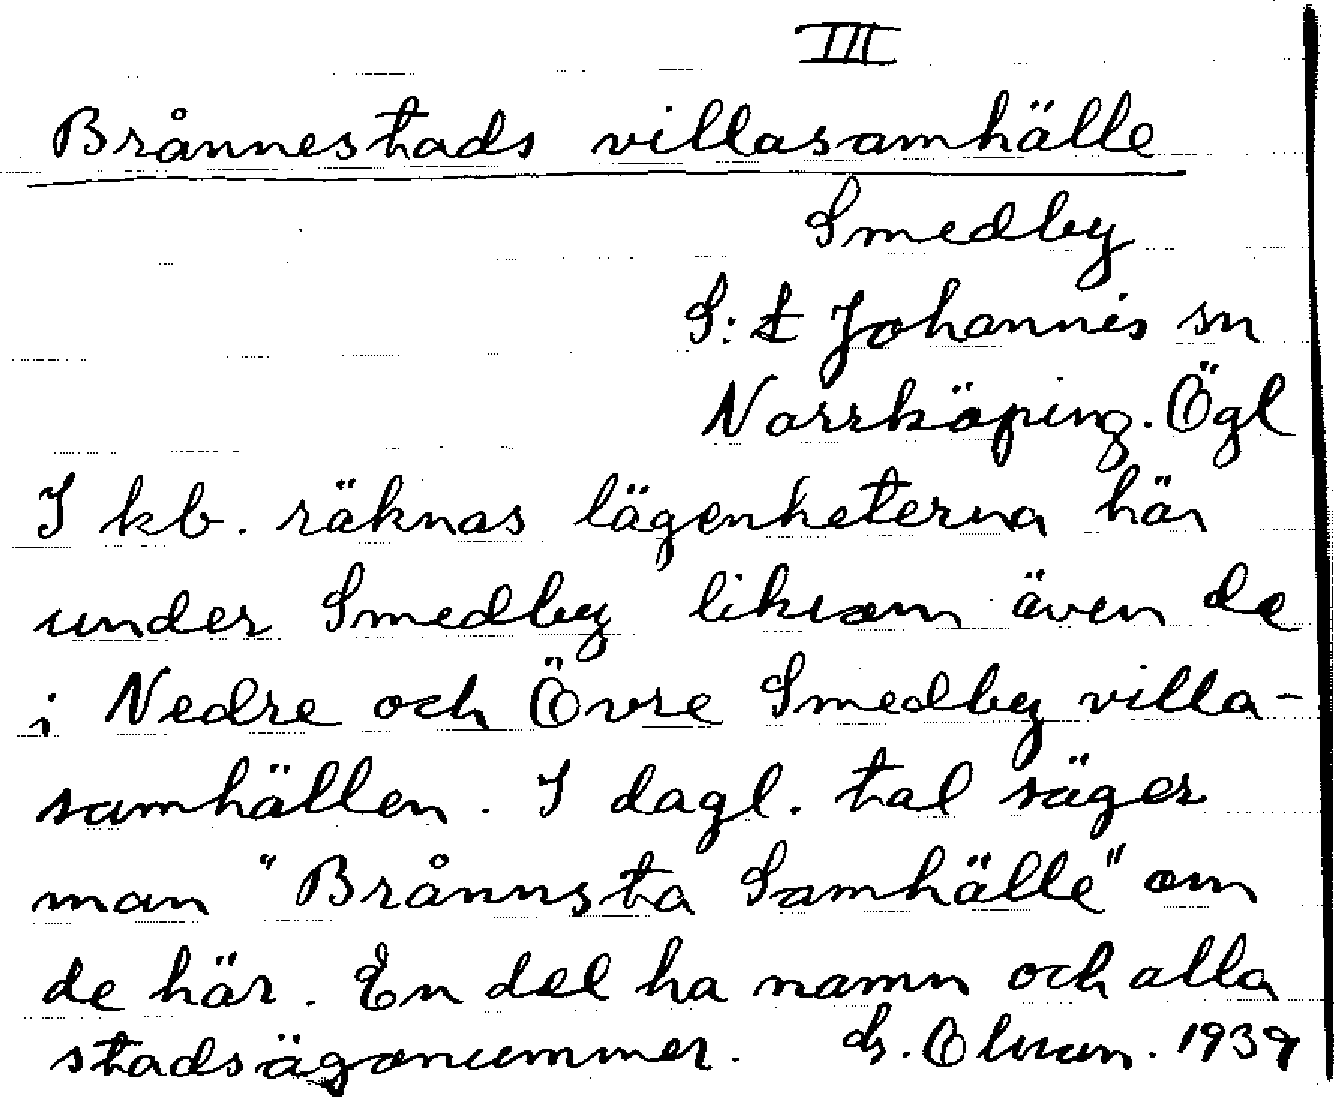 III
Brånnestads villasamhälle
Smedby
S:t Johannis sn
Norrköping. Ögl
I kb. räknas lägenheterna här
under Smedby liksom även de
i Nedre och Övre Smedby villa-
samhällen. I dagl. tal säger
man "Brånnsta Samhälle" om
de här. En del ha namn och alla
stadsägonummer. 1939